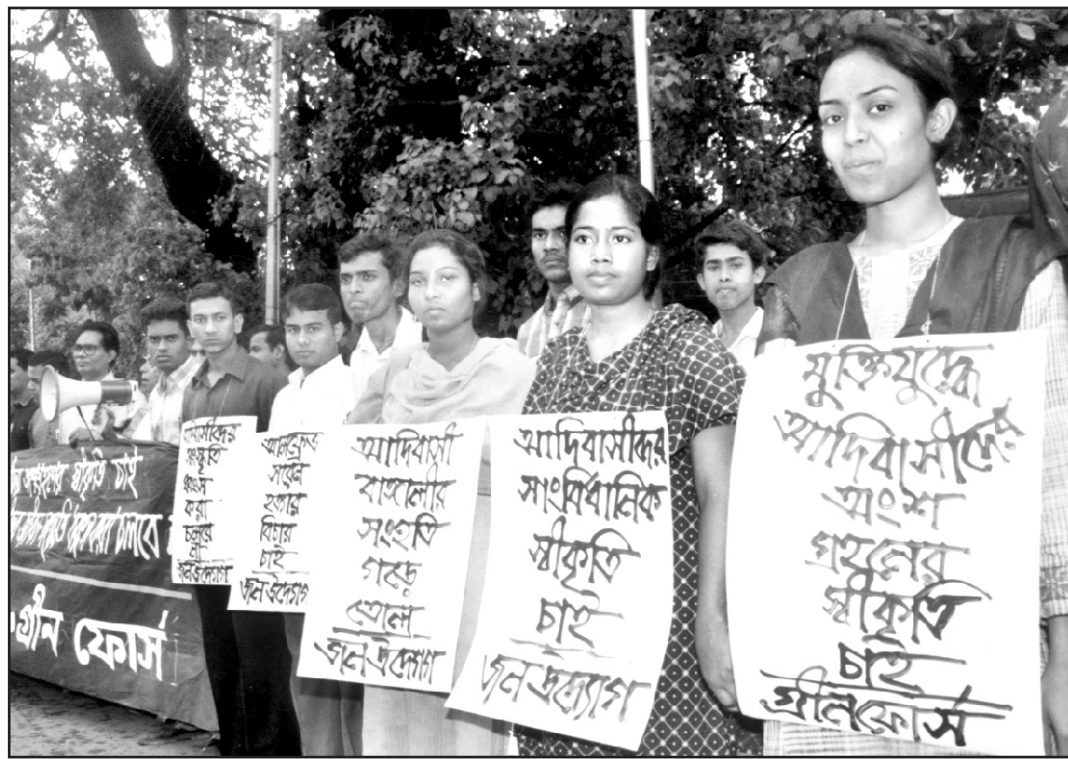 স্বীকৃতি চাই
চলবে
গ্রীন ফোর্স
আদিবাসীদের
সংস্কৃতি
ধ্বংস
করা
চলবে
না
জনউদ্যোগ
আলফ্রেড
সরেন
হত্যার
বিচার
চাই
জনউদ্যোগ
আদিবাসী
বাঙ্গালীর
সংহতি
গড়ে
তোল
জনউদ্যোগ
আদিবাসীদের
সাংবিধানিক
স্বীকৃতি
চাই
জনউদ্যোগ
মুক্তিযুদ্ধে
আদিবাসীদের
অংশ
গ্রহনের
স্বীকৃতি
চাই
গ্রীনফোর্স